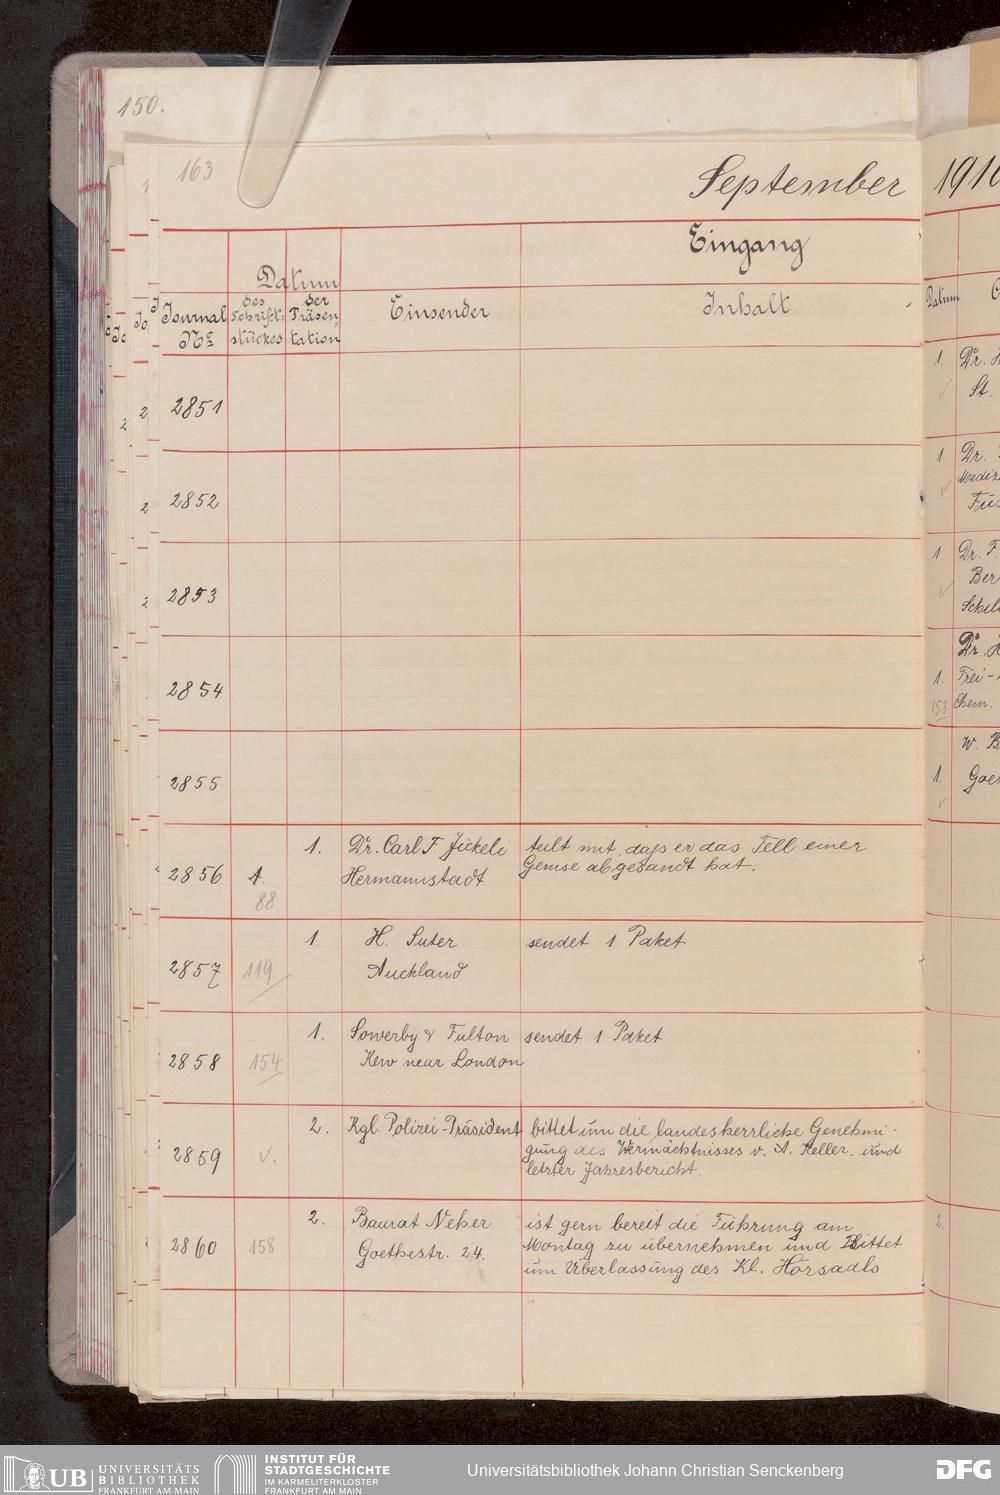 150.
163
September 1910
Eingang
Datum
Journal
No
des
Schrift-
stückes
der
Präsen-
tation
Einsender
Inhalt
Datum
2851
1.
Dr. H
St.
2852
1
Dr.
Mediz
Fus
2853
1
Dr. F.
Ber
Schil
2854
Dr. H
1. Frei-
153 Chem.
2855
W. B
1. Goe
2856
4.
88
1.
Dr. Carl F. Jickeli
Hermannstadt
teilt mit, daß er das Fell einer
Gemse abgesandt hat.
2857
119
1.
H. Suter
Auckland
sendet 1 Paket
2858
154
1.
Sowerby & Fulton
Kew near London
sendet 1 Paket
2859
2.
Kgl. Polizei-Präsident
bittet um die landesherrliche Genehmi-
gung des Vermächtnisses v. A. Keller. und
letzter Jahresbericht.
2860
158
2.
Baurat Neher
Goethestr. 24.
ist gern bereit die Führung am
Montag zu übernehmen und Bittet
um Überlassung des Kl. Hörsaals
2.
UB UNIVERSITÄTS
BIBLIOTHEK
FRANKFURT AM MAIN
INSTITUT FÜR
STADTGESCHICHTE
IM KARMELITERKLOSTER
FRANKFURT AM MAIN
Universitätsbibliothek Johann Christian Senckenberg
DFG